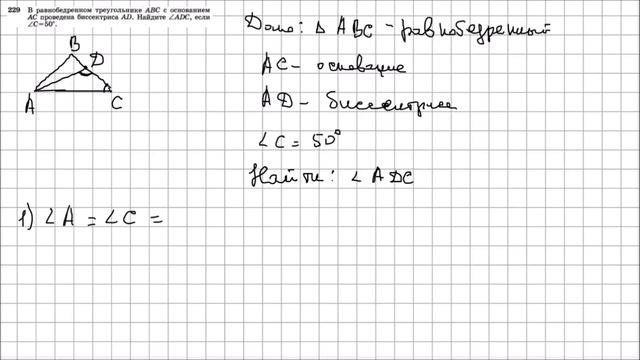 229 В равнобедренном треугольнике ABC с основанием
AC проведена биссектриса AD. Найдите ∠ADC, если
∠C=50°.
B
D
A
C
Дано: Δ ABC - равнобедренный
AC - основание
AD - биссектриса
∠C = 50°
Найти: ∠ADC
1) ∠A = ∠C =